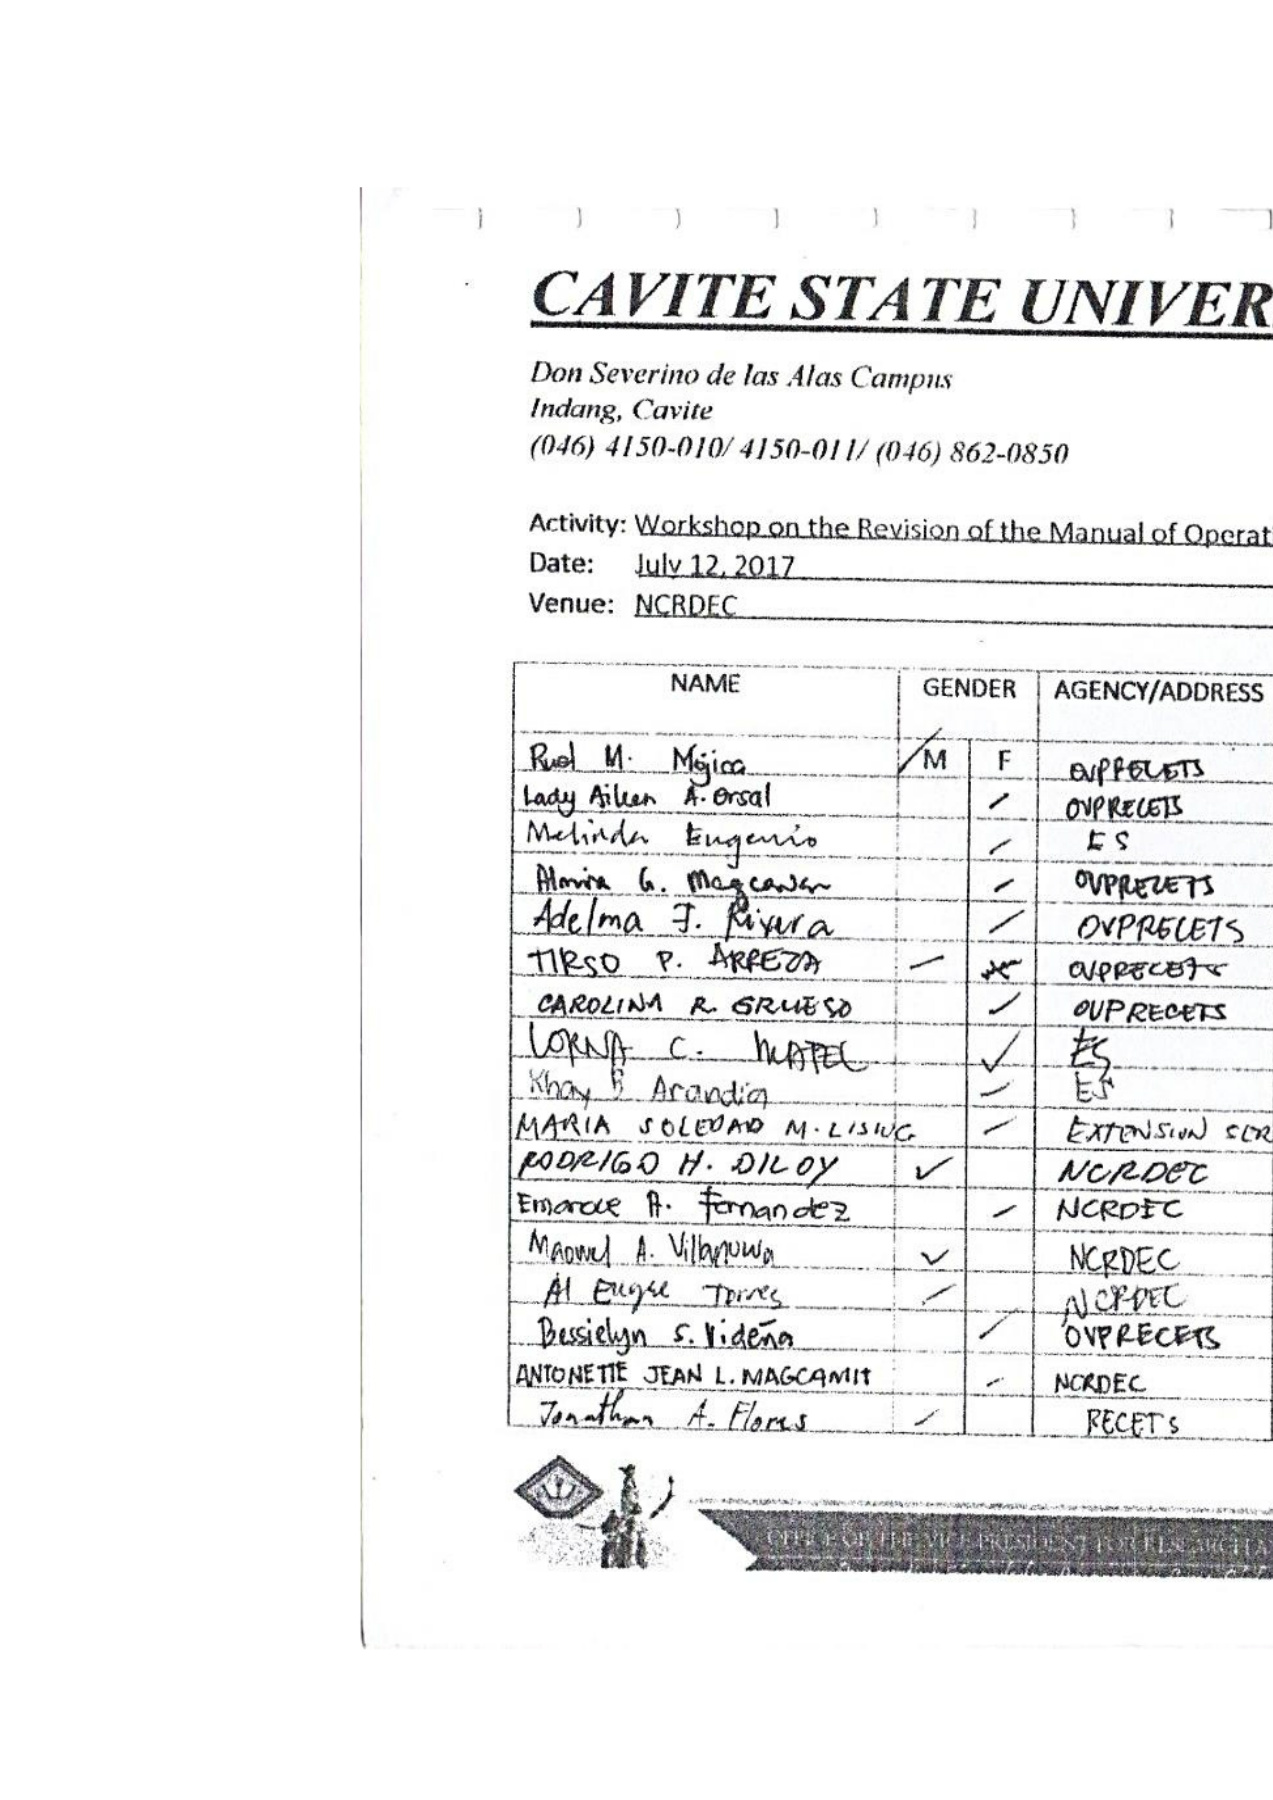 CAVITE STATE UNIVER
Don Severino de las Alas Campus
Indang, Cavite
(046) 4150-010/ 4150-011/ (046) 862-0850
Activity: Workshop on the Revision of the Manual of Operat
Date: July 12, 2017
Venue: NCRDEC
NAME GENDER AGENCY/ADDRESS
Ruel M. Mojica M F OVPRECETS
Lady Aileen A. Orsal OVPRECETS
Melinda Eugenio ES
Almira G. Magcawas OVPRECETS
Adelma J. Rivera OVPRECETS
TIRSO P. ARREZA OVPRECETS
CAROLINA R. GRUESO OVPRECETS
LORNA C. MATEL ES
Khay B Arandia ES
MARIA SOLEDAD M. LISING EXTENSION SER
RODRIGO H. DILOY NCRDEC
A. Fernandez NCRDEC
Manuel A. Villanueva NCRDEC
Al Torres NCRDEC
Bessielyn S. Videña OVPRECETS
ANTONETTE JEAN L. MAGCAMIT NCRDEC
Jonathan A. Flores RECETS
OFFICE OF THE VICE PRESIDENT FOR RESEARCH